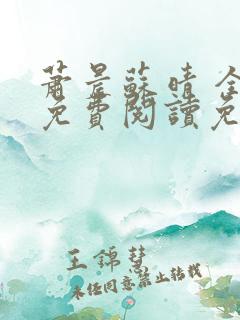 蕭景蘇晴 全
免費閱讀免
王錦彗
未經同意禁止轉載